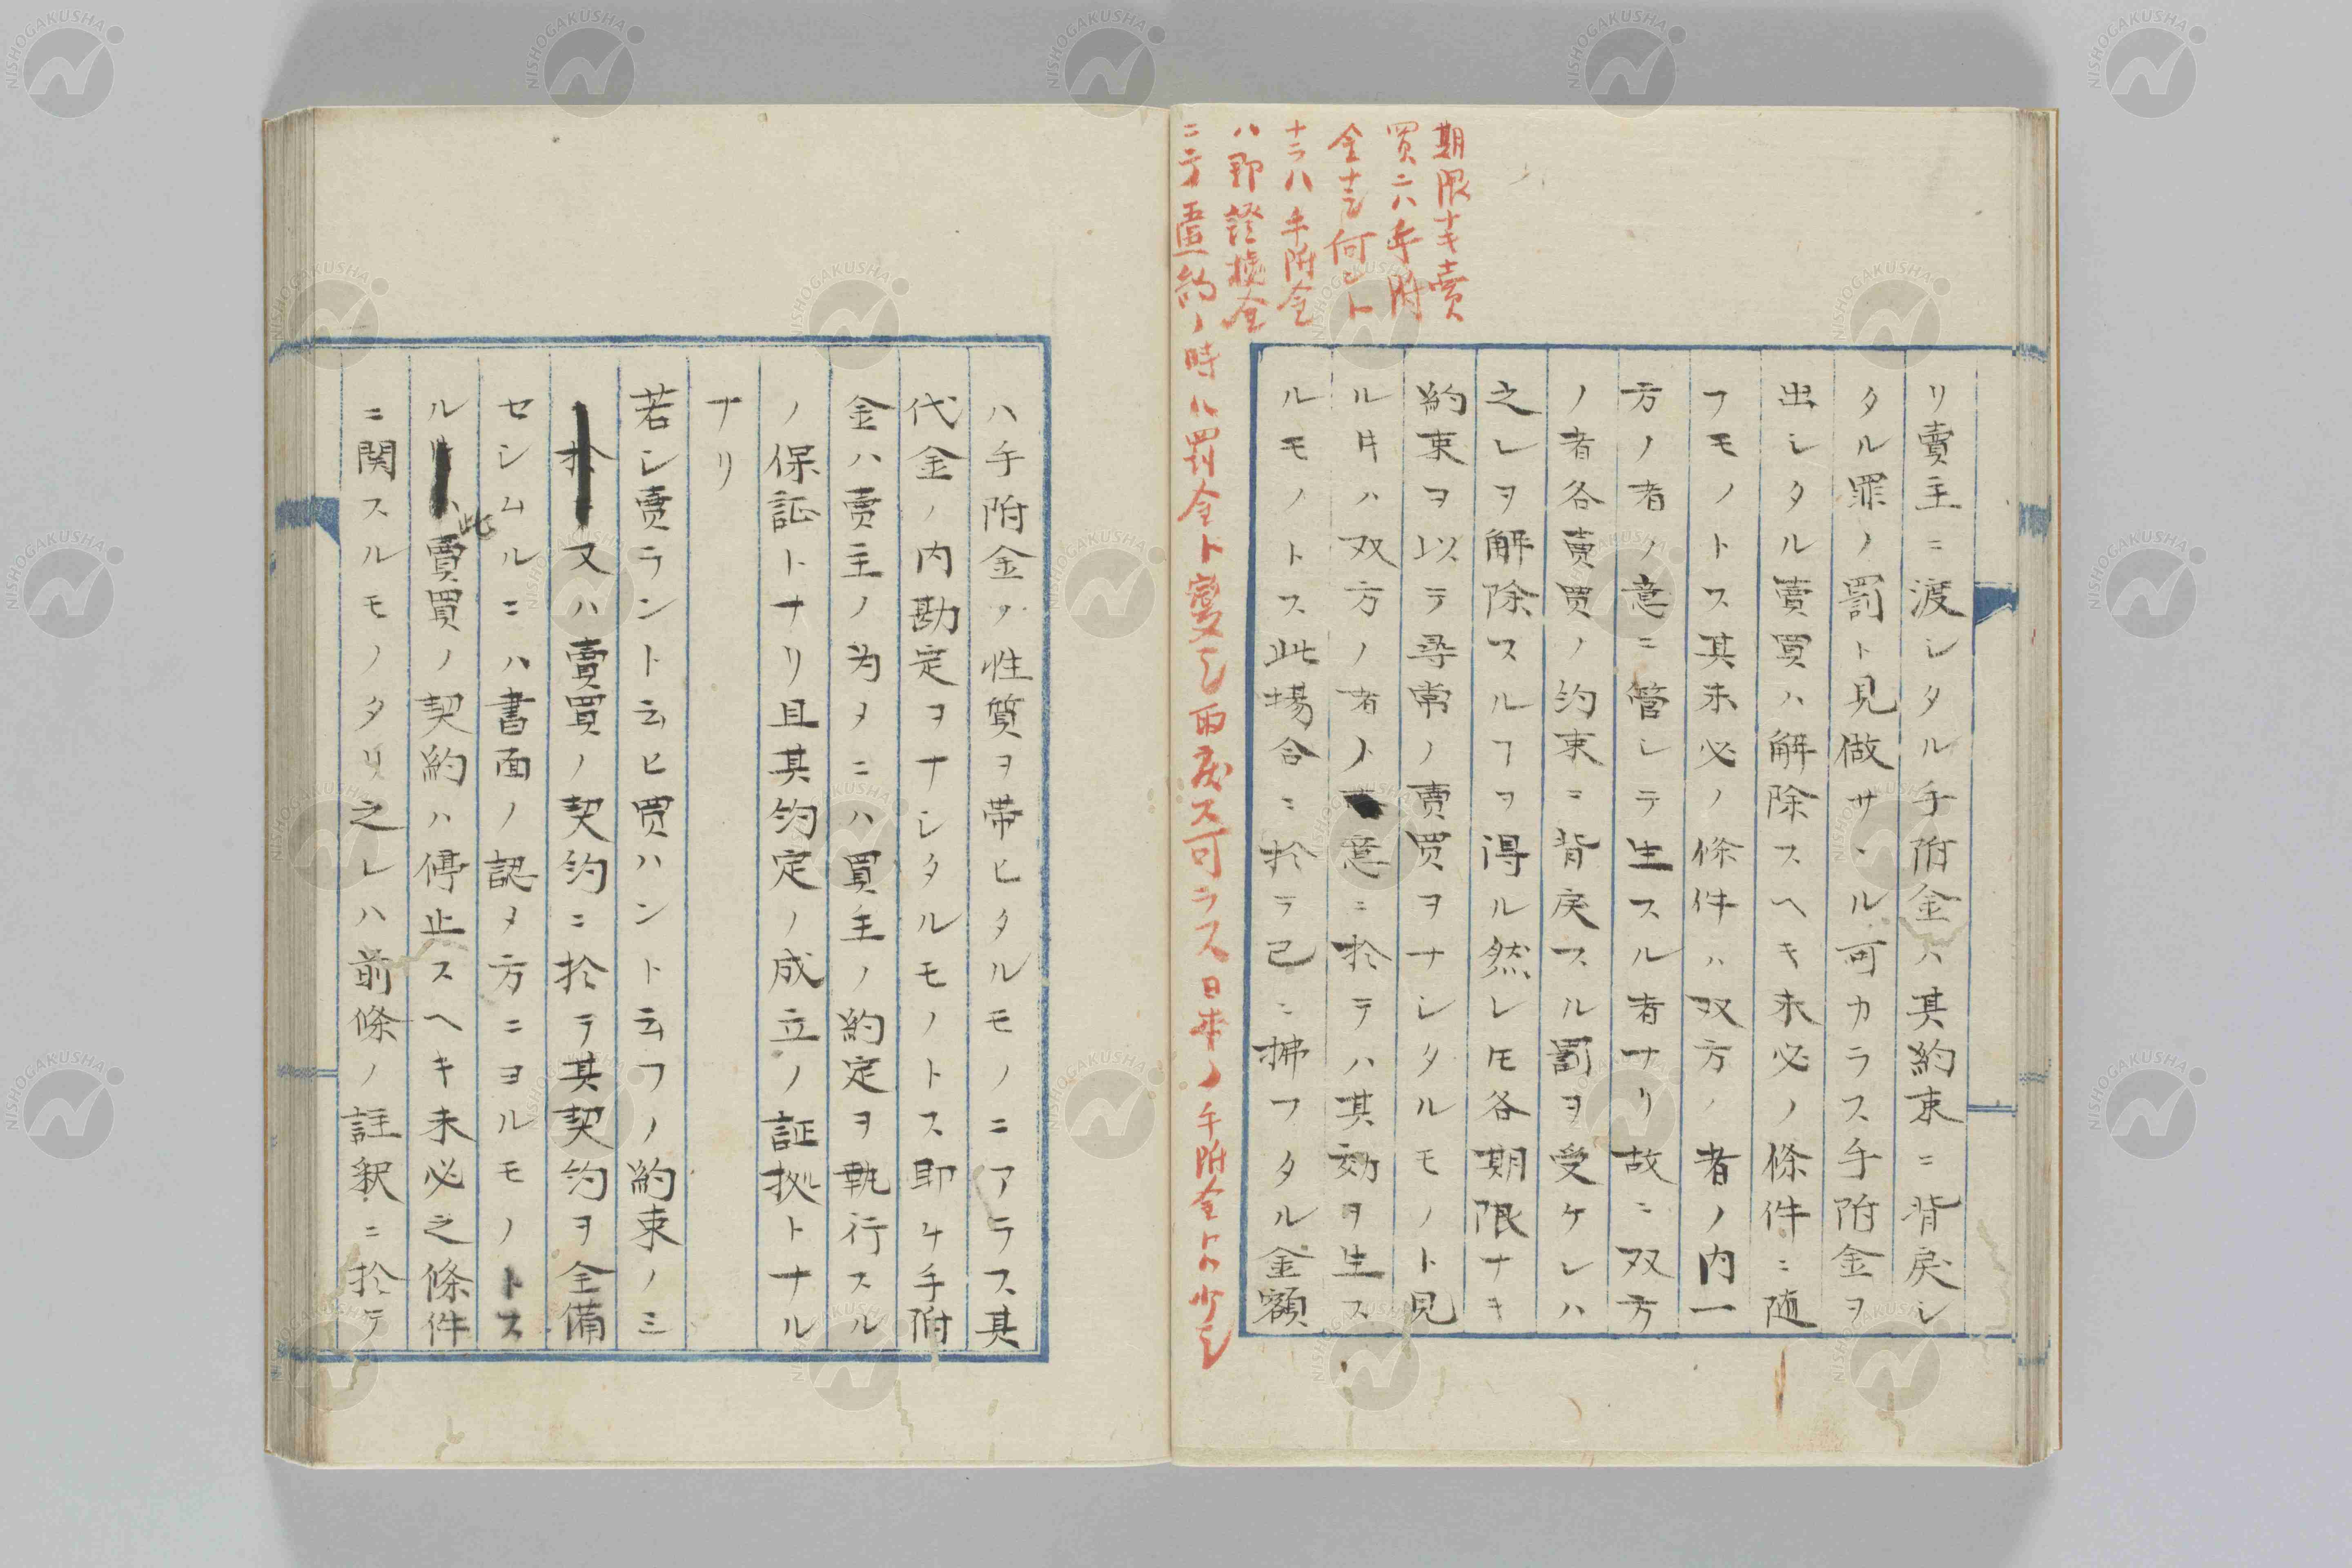 期限ナキ賣
買ニハ手附
金ナシ何ントナ
ラハ手附金
ハ即證拠金
ニテ違約ノ時ハ罰金ト変シ両戻ス可ラス日本ノ手附金トハ少シ
リ賣主ニ渡シタル手附金ハ其約束ニ背戻シ
タル罪ノ罰ト見做サヽル可カラス手附金ヲ
出シタル賣買ハ解除スヘキ未必ノ條件ニ随
フモノトス其未必ノ條件ハ双方ノ者ノ内一
方ノ者ノ意ニ管シテ生スル者ナリ故ニ双方
ノ者各賣買ノ約束ニ背戻スル罰ヲ受ケレハ
之レヲ解除スルヿヲ得ル然レ𪜈各期限ナキ
約束ヲ以テ尋常ノ賣買ヲナシタルモノト見
ル片ハ双方ノ者ノ意ニ於テハ其効ヲ生ス
ルモノトス此場合ニ於テ已ニ拂フタル金額
ハ手附金ノ性質ヲ帯ヒタルモノニアラス其
代金ノ内勘定ヲナシタルモノトス即ケ手附
金ハ賣主ノ為メニハ買主ノ約定ヲ執行スル
ノ保証トナリ且其約定ノ成立ノ証拠トナル
ナリ
若シ賣ラント云ヒ買ハント云フノ約束ノミ
又ハ賣買ノ契約ニ於テ其契約ヲ全備
セシムルニハ書面ノ認メ方ニヨルモノトス
ル此賣買ノ契約ハ停止スヘキ未必之條件
ニ関スルモノタリ之レハ前條ノ註釈ニ於テ